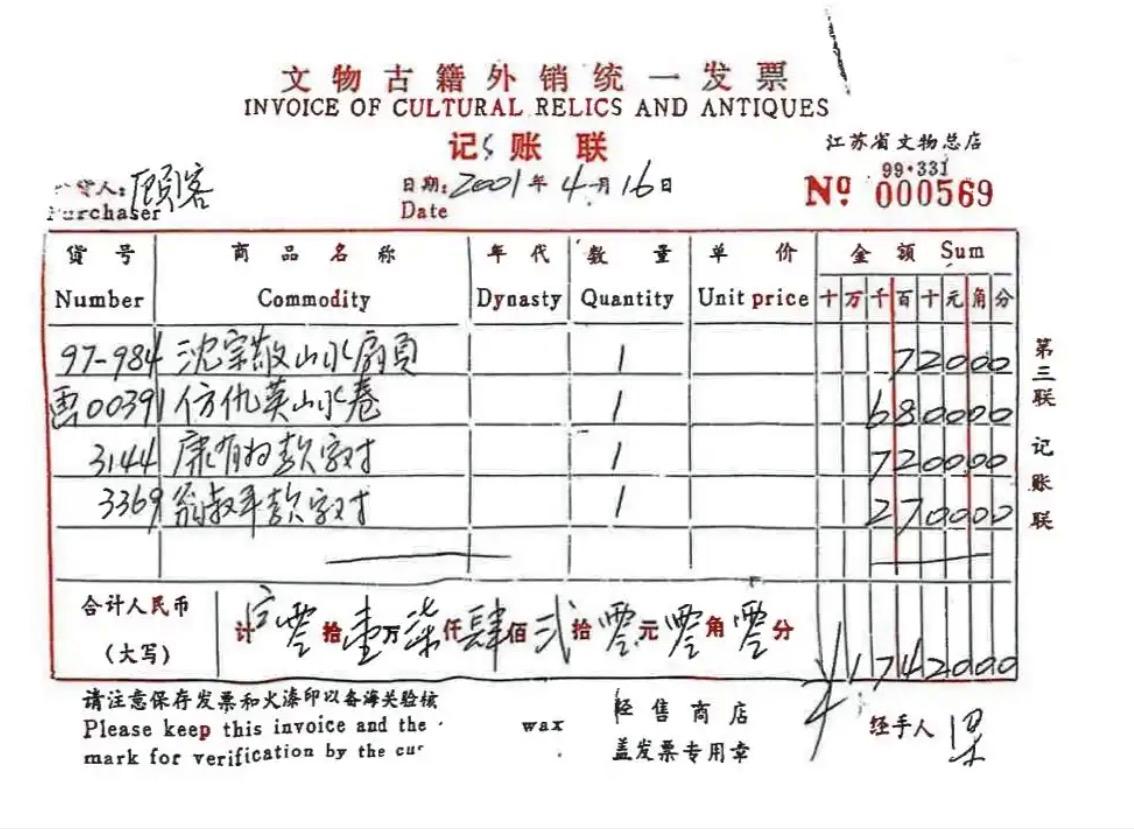 文物古籍外销统一发票
INVOICE OF CULTURAL RELICS AND ANTIQUES
记账联
江苏省文物总店
99·331
货人：顾客
Purchaser
日期：2001年4月16日
Date
Nº 000569
货号 商品名称 年代 数量 单价 金额 Sum
Number Commodity Dynasty Quantity Unit price 十 万 千 百 十 元 角 分
97-984 沈宗敬山水扇頁 1 72000
画00391 仿仇英山水卷 1 680000
3144 康有为款字对 1 720000
3369 翁叔平款字对 1 270000
合计人民币
(大写)
计 零拾壹万柒仟肆佰贰拾零元零角零分
¥1742000
请注意保存发票和火漆印以备海关验核
Please keep this invoice and the wax
mark for verification by the cu
经售商店
盖发票专用章
经手人
第三联 记账联